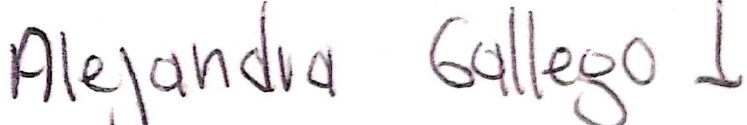 Alejandra Gallego L